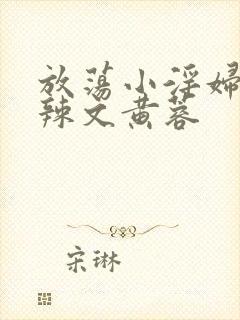 放荡小淫婦
辣文黄蓉
宋琳